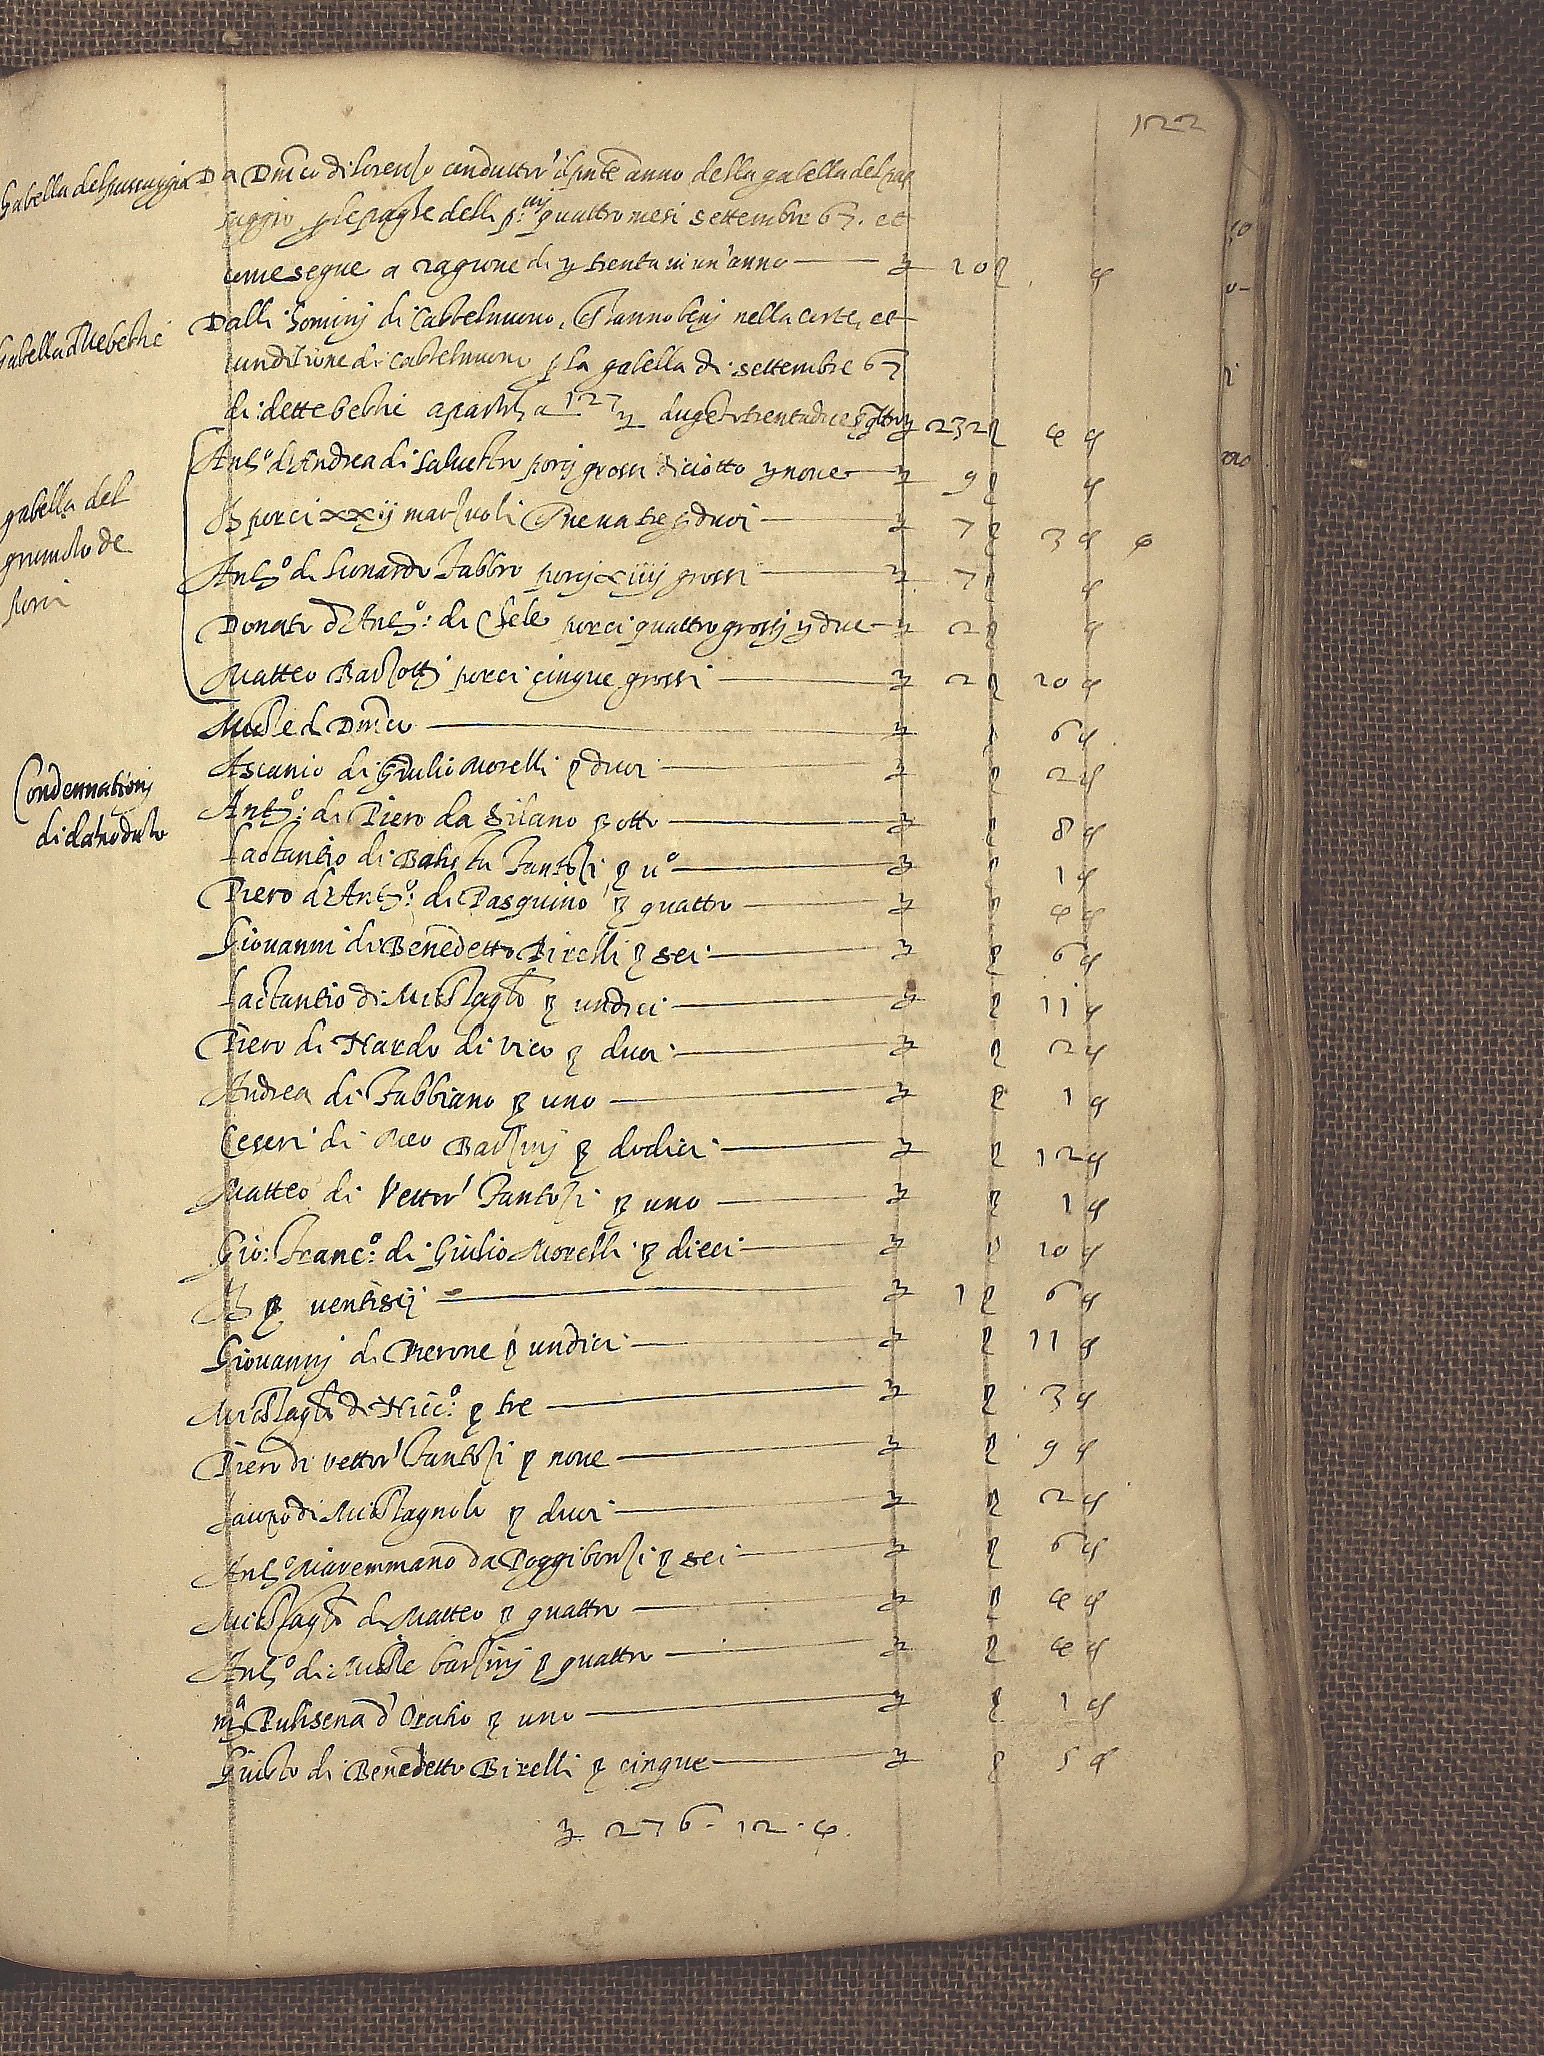 122
Gabella del passaggio Da Dm̃co di Lorenzo conduttor' il pñte anno della gabella del pas
saggio p le paghe delli p.mi quattro mesi settembre 67. et
come segue a ragione di # trenta in un'anno — # 10 ß . ₰
Gabella d'lle bestie Dalli homini di Castelnuovo, c'hanno beni nella corte, et
iurisditione di Castelnuovo p la gabella di settembre 67
di dette bestie a partita 127 # dugentotrentadue ß quattro # 232 ß 4 ₰
gabella del
grumolo de
porci
Ant.o d'Andrea di Salvestro porci grossi diciotto # nove — # 9 ß ₰
E porci xxij marzuoli # ß — # 7 ß 3 ₰ 4
Ant.o di Lionardo Fabbro porci xiiij grossi — # 7 ß ₰
Donato d'Ant.o: di Chele porci quattro grossi # due — # 2 ß ₰
Matteo Barzotti porci cinque grossi — # 2 ß 10 ₰
Condennationi
di dannodato
Michele di Dm̃co — # ß 6 ₰
Ascanio di Giulio Morelli ß duoi — # ß 2 ₰
Ant.o: di Piero da Silano ß otto — # ß 8 ₰
Lactantio di Batista Fantozi ß u.o — # ß 1 ₰
Piero d'Ant.o: di Pasquino ß quattro — # ß 4 ₰
Giovanni di Benedetto Birelli ß sei — # ß 6 ₰
Lactantio di Michelagl.o ß undici — # ß 11 ₰
Piero di Nardo di Vico ß duoi — # ß 2 ₰
Andrea di Fabbiano ß uno — # ß 1 ₰
Ceseri di Meo Barzini ß dodici — # ß 12 ₰
Matteo di Vettor' Fantozi ß uno — # ß 1 ₰
Gio: Franc.o: di Giulio Morelli ß dieci — # ß 10 ₰
E ß ventisei — # 1 ß 6 ₰
Giovanni di Pierone ß undici — # ß 11 ₰
Michelagl.o di Nicc.o: ß tre — # ß 3 ₰
Piero di Vettor' Fantozi ß nove — # ß 9 ₰
Iacopo di Michelagnolo ß duoi — # ß 2 ₰
Ant.o Maremmano da Poggibonzi ß sei — # ß 6 ₰
Michelagl.o di Matteo ß quattro — # ß 4 ₰
Ant.o di Michele Barzini ß quattro — # ß 4 ₰
m.a Pulisena d'Oratio ß uno — # ß 1 ₰
Giusto di Benedetto Birelli ß cinque — # ß 5 ₰
# 276. 12. 4.